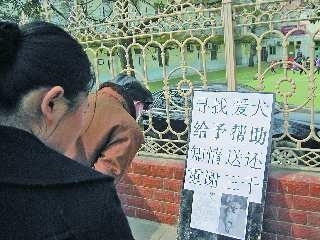 寻找爱犬
给予帮助
知情送还
重谢三千